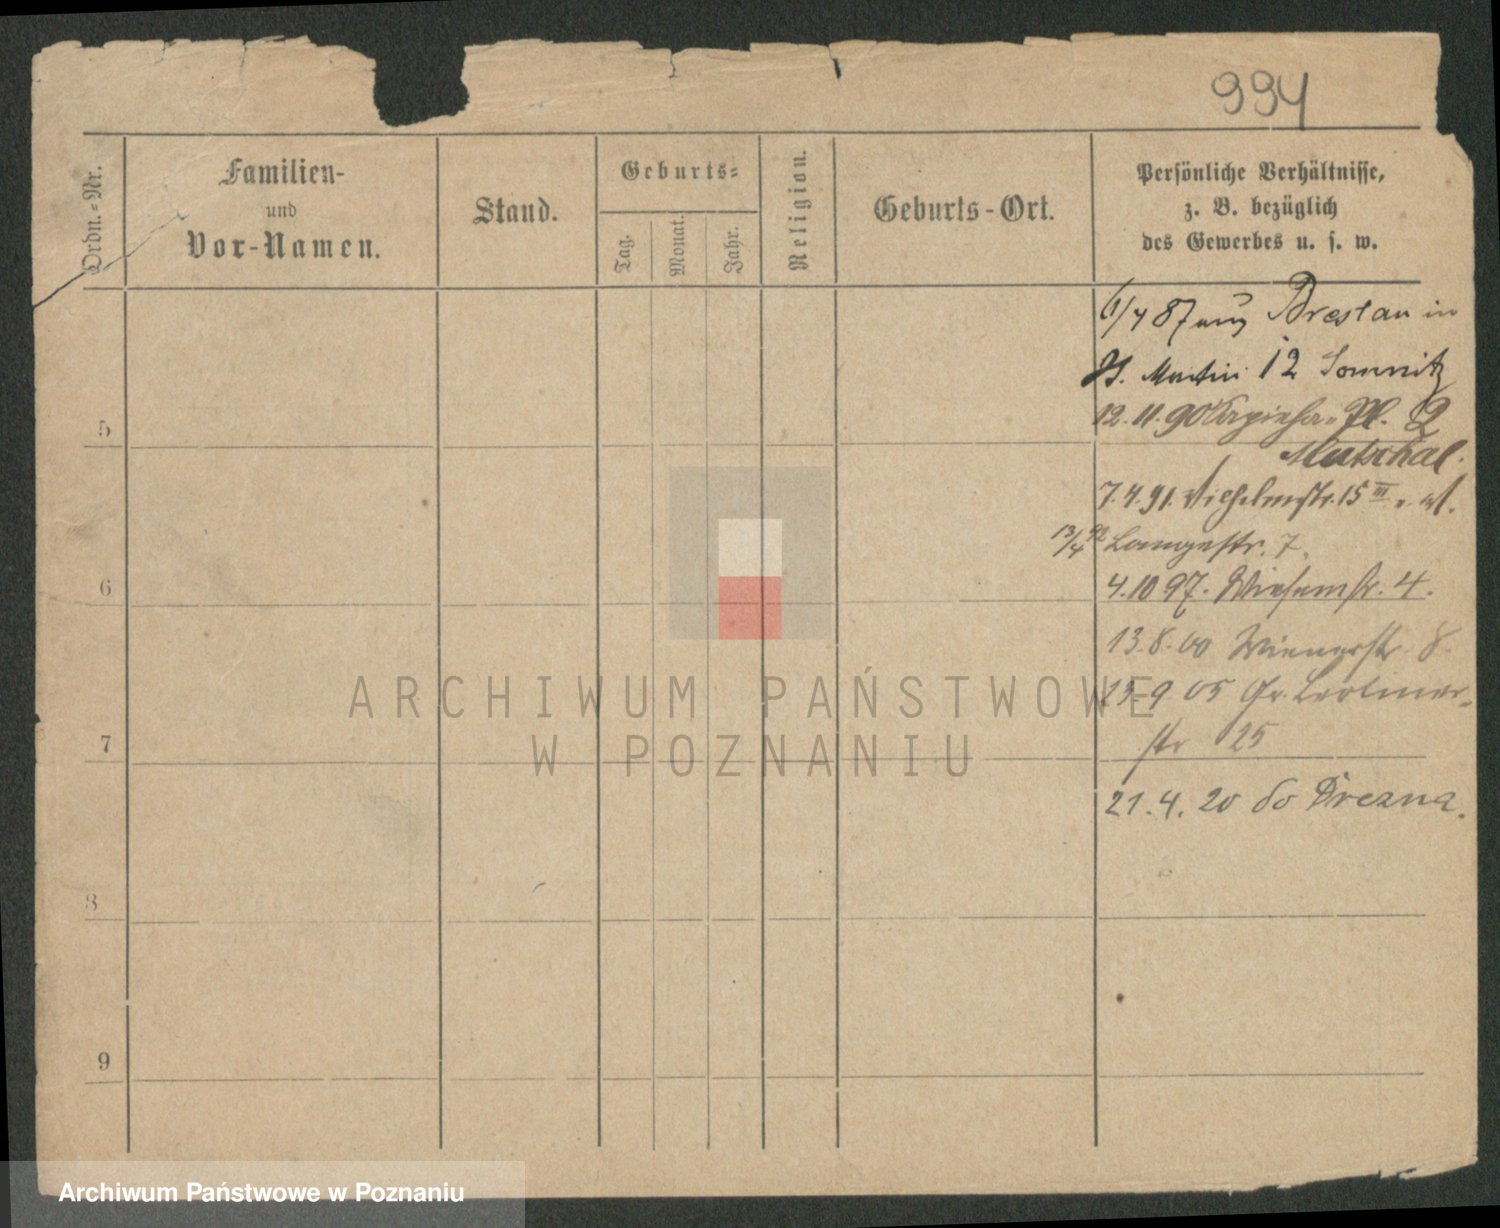 994
Ordn.-Nr.
Familien-
und
Vor-Namen.
Stand.
Geburts-
Tag.
Monat.
Jahr.
Religion.
Geburts-Ort.
Persönliche Verhältnisse,
z. B. bezüglich
des Gewerbes u. s. w.
87 aus Breslau in
St. Martin 12 Somnitz
5
12. 11. 90 Sapieha-Pl. 2
7. 4. 91. Wilhelmstr. 15 III
13/4 92 Langestr. 7.
6
4. 10 97. Wiesenstr. 4.
13. 8. 00 Wienerstr 8.
9 05 Gr. Berliner-
7
str 25
21. 4. 20 do Drezna.
8
9
ARCHIWUM PAŃSTWOWE
W POZNANIU
Archiwum Państwowe w Poznaniu